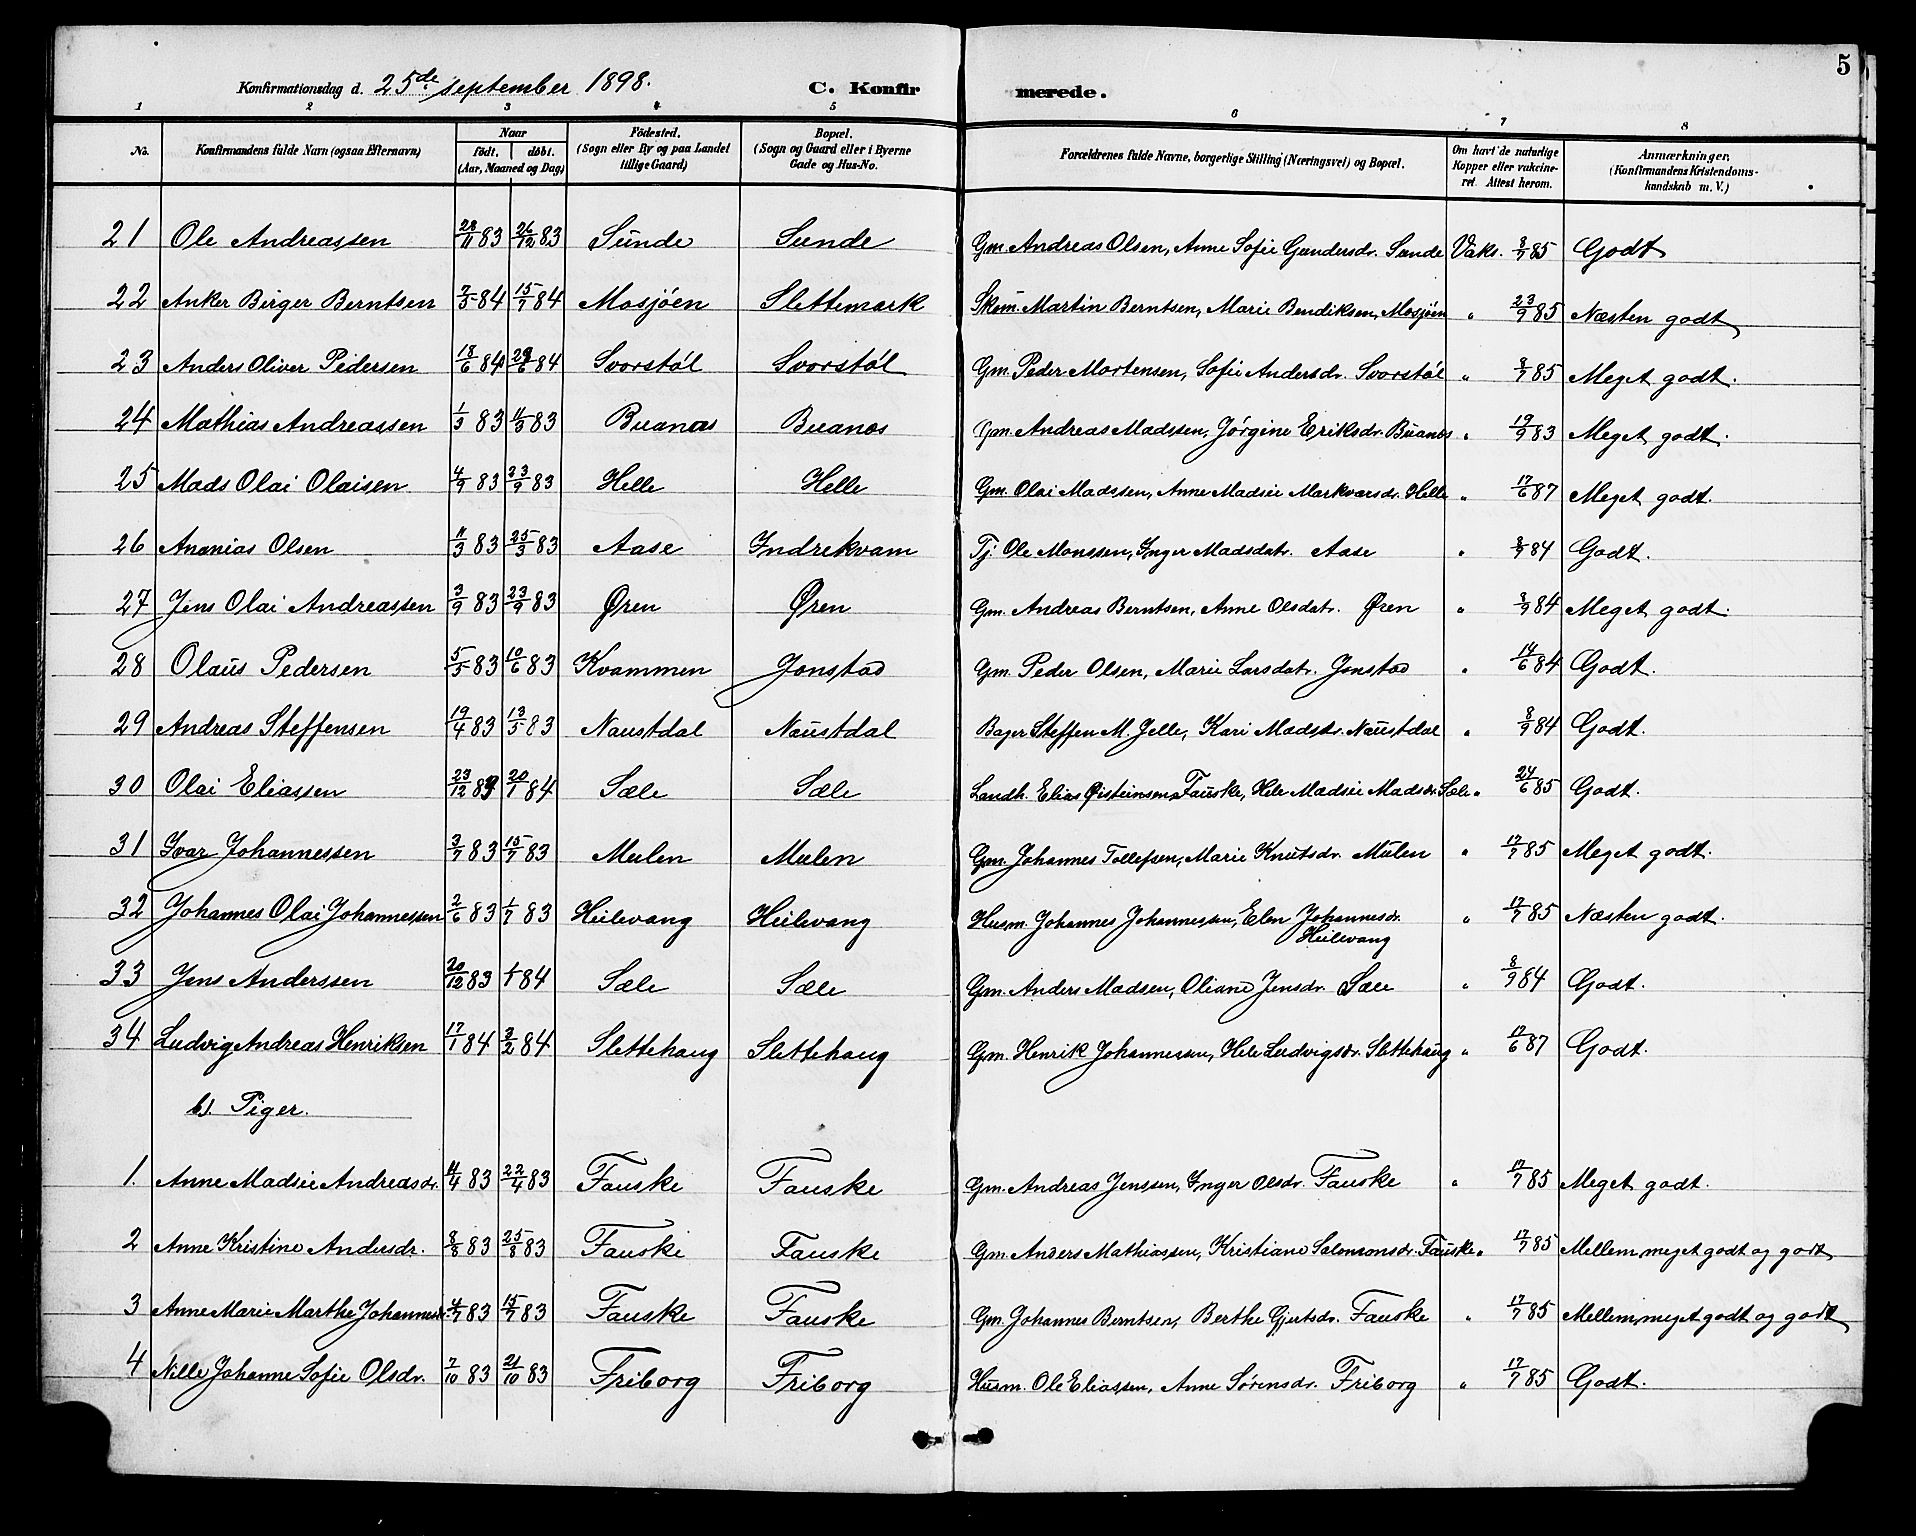 5
Konfirmationsdag d. 25de september 1898. C. Konfirmerede.
1 2 3 4 5 6 7 8
No. Konfirmandens fulde Navn (ogsaa Efternavn) Naar født, døbt. (Aar, Maaned og Dag) Fødested. (Sogn eller By og paa Landet tillige Gaard) Bopæl. (Sogn og Gaard eller i Byerne Gade og Hus-No. Forældrenes fulde Navne, borgerlige Stilling (Næringsvei) og Bopæl. Om havt de naturlige Kopper eller vakcineret. Attest herom. Anmærkninger. (Konfirmandens Kristendomskundskab m. V.)
21 Ole Andreassen 28/11 83 26/12 83 Sunde Sunde Gm. Andreas Olsen, Anne Sofie Gundersdr. Sunde Vaks. 8/7 85 Godt
22 Anker Birger Berntsen 7/5 84 15/7 84 Mosjöen Slettemark Skom. Martin Berntsen, Marie Bendiksen, Mosjöen " 23/9 85 Næsten godt
23 Anders Oliver Pedersen 18/6 84 29/6 84 Svorstøl Svorstøl Gm. Peder Mortensen, Sofie Andersdr. Svorstøl " 8/7 85 Meget godt.
24 Mathias Andreassen 1/3 83 11/3 83 Buanæs Buanæs Gm. Andreas Madssen, Jørgine Eriksdr. Buanæs " 19/9 83 Meget godt.
25 Mads Olai Olaisen 4/9 83 23/9 83 Helle Helle Gm. Olai Madssen, Anne Madsie Markvarsdr. Helle " 17/6 87 Meget godt.
26 Ananias Olsen 11/3 83 25/3 83 Aase Indrekvam Tj. Ole Monssen, Inger Madsdatr. Aase " 8/9 84 Godt.
27 Jens Olai Andreassen 3/9 83 23/9 83 Øren Øren Gm. Andreas Berntsen, Anne Olsdatr. Øren " 8/9 84 Meget godt.
28 Olaus Pedersen 5/5 83 10/6 83 Kvammen Jonstad Gm. Peder Olsen, Marie Larsdatr. Jonstad " 14/6 84 Godt.
29 Andreas Steffensen 19/4 83 13/5 83 Naustdal Naustdal Bager Steffen M. Jelle, Kari Madsdr. Naustdal " 8/9 84 Godt.
30 Olai Eliassen 23/12 83 20/1 84 Sæle Sæle Landh. Elias Øisteinsen Fauske, Hele Madsie Madsdr. Sæle " 24/6 85 Godt.
31 Ivar Johannessen 3/7 83 15/7 83 Mulen Mulen Gm. Johannes Tollefsen, Marie Knutsdr. Mulen " 17/7 85 Meget godt.
32 Johannes Olai Johannessen 2/6 83 1/7 83 Heilevang Heilevang Husm. Johannes Johannessen, Elen Johannesdr. Heilevang " 17/7 85 Næsten godt.
33 Jens Anderssen 20/12 83 1/1 84 Sæle Sæle Gm. Anders Madsen, Oliane Jensdr. Sæle " 8/9 84 Godt.
34 Ludvig Andreas Henriksen 17/1 84 3/2 84 Slettehaug Slettehaug Gm. Henrik Johannessen, Hele Ludvigsdr. Slettehaug " 17/6 87 Godt.
b). Piger.
1. Anne Madsie Andreasdr. 11/4 83 22/4 83 Fauske Fauske Gm. Andreas Jenssen, Inger Olsdr. Fauske " 17/7 85 Meget godt.
2 Anne Kristine Andersdr. 8/8 83 25/8 83 Fauske Fauske Gm. Anders Mathiassen, Kristiane Salomonsdr. Fauske " 17/7 85 Mellem meget godt og godt
3 Anne Marie Marthe Johannesdr. 4/7 83 15/7 83 Fauske Fauske Gm. Johannes Berntsen, Berthe Gjertsdr. Fauske " 17/7 85 Mellem meget godt og godt
4 Nille Johanne Sofie Olsdr. 7/10 83 21/10 83 Friborg Friborg Husm. Ole Eliassen, Anne Sørensdr. Friborg " 17/7 85 Godt.